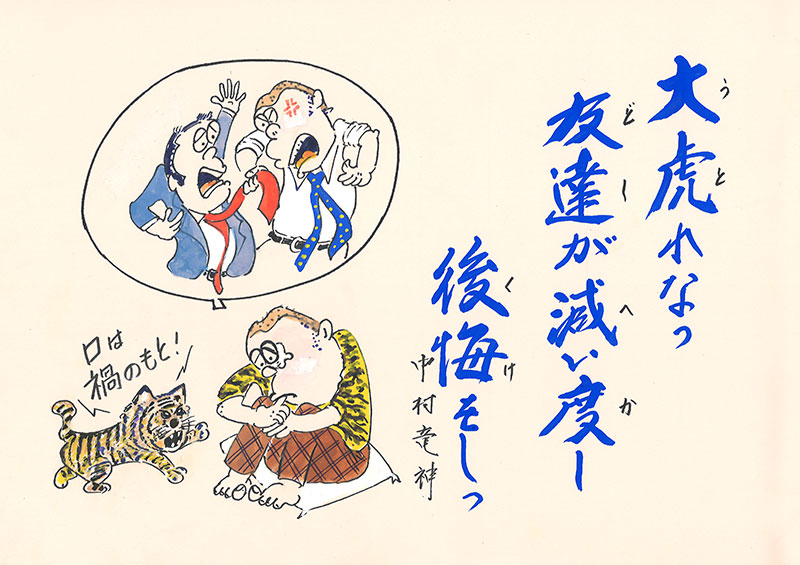 うと
大虎れなっ
どしへか
友達が減い度ー
くけ
後悔そしっ
中村竜神
口は
禍のもと!